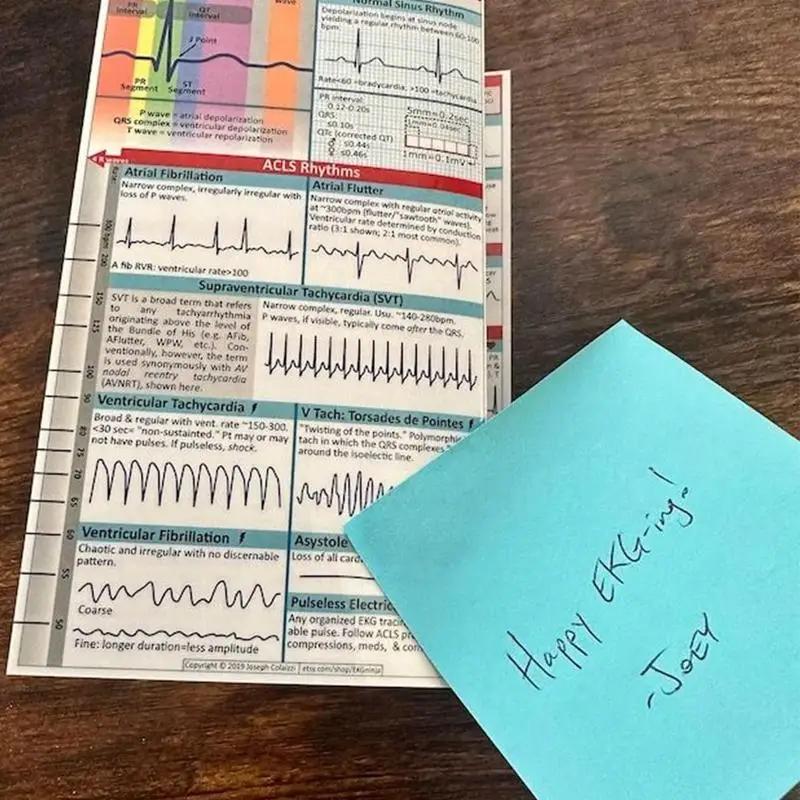 PR
Interval
QT
Interval
wave
J Point
PR
Segment
ST
Segment
P wave = atrial depolarization
QRS complex = ventricular depolarization
T wave = ventricular repolarization
Normal Sinus Rhythm
Depolarization begins at sinus node
yielding a regular rhythm between 60-100
bpm.
Rate<60 =bradycardia; >100 =tachycardia
PR interval:
0.12-0.20s
QRS:
≤0.10s
QTc (corrected QT)
♂ ≤0.44s
♀ ≤0.46s
5mm=0.2sec
1mm=0.04sec
1mm=0.1mv
R waves
ACLS Rhythms
Atrial Fibrillation
Narrow complex, irregularly irregular with
loss of P waves.
A fib RVR: ventricular rate>100
Atrial Flutter
Narrow complex with regular atrial activity
at ~300bpm (flutter/"sawtooth" waves).
Ventricular rate determined by conduction
ratio (3:1 shown; 2:1 most common).
Supraventricular Tachycardia (SVT)
SVT is a broad term that refers
to any tachyarrhythmia
originating above the level of
the Bundle of His (e.g. AFib,
AFlutter, WPW, etc.). Con-
ventionally, however, the term
is used synonymously with AV
nodal reentry tachycardia
(AVNRT), shown here.
Narrow complex, regular. Usu. ~140-280bpm.
P waves, if visible, typically come after the QRS.
Ventricular Tachycardia
Broad & regular with vent. rate ~150-300.
<30 sec= "non-sustainted." Pt may or may
not have pulses. If pulseless, shock.
V Tach: Torsades de Pointes
"Twisting of the points." Polymorphic
tach in which the QRS complexes
around the isoelectric line.
Ventricular Fibrillation
Chaotic and irregular with no discernable
pattern.
Coarse
Fine: longer duration=less amplitude
Asystole
Loss of all card
Pulseless Electric
Any organized EKG tracin
able pulse. Follow ACLS pr
compressions, meds, & con
300 bpm
200
150
125
100
90
80
75
70
65
60
55
50
Copyright © 2019 Joseph Colaizzi
etsy.com/shop/EKGninja
Happy EKG-ing!
-JOEY